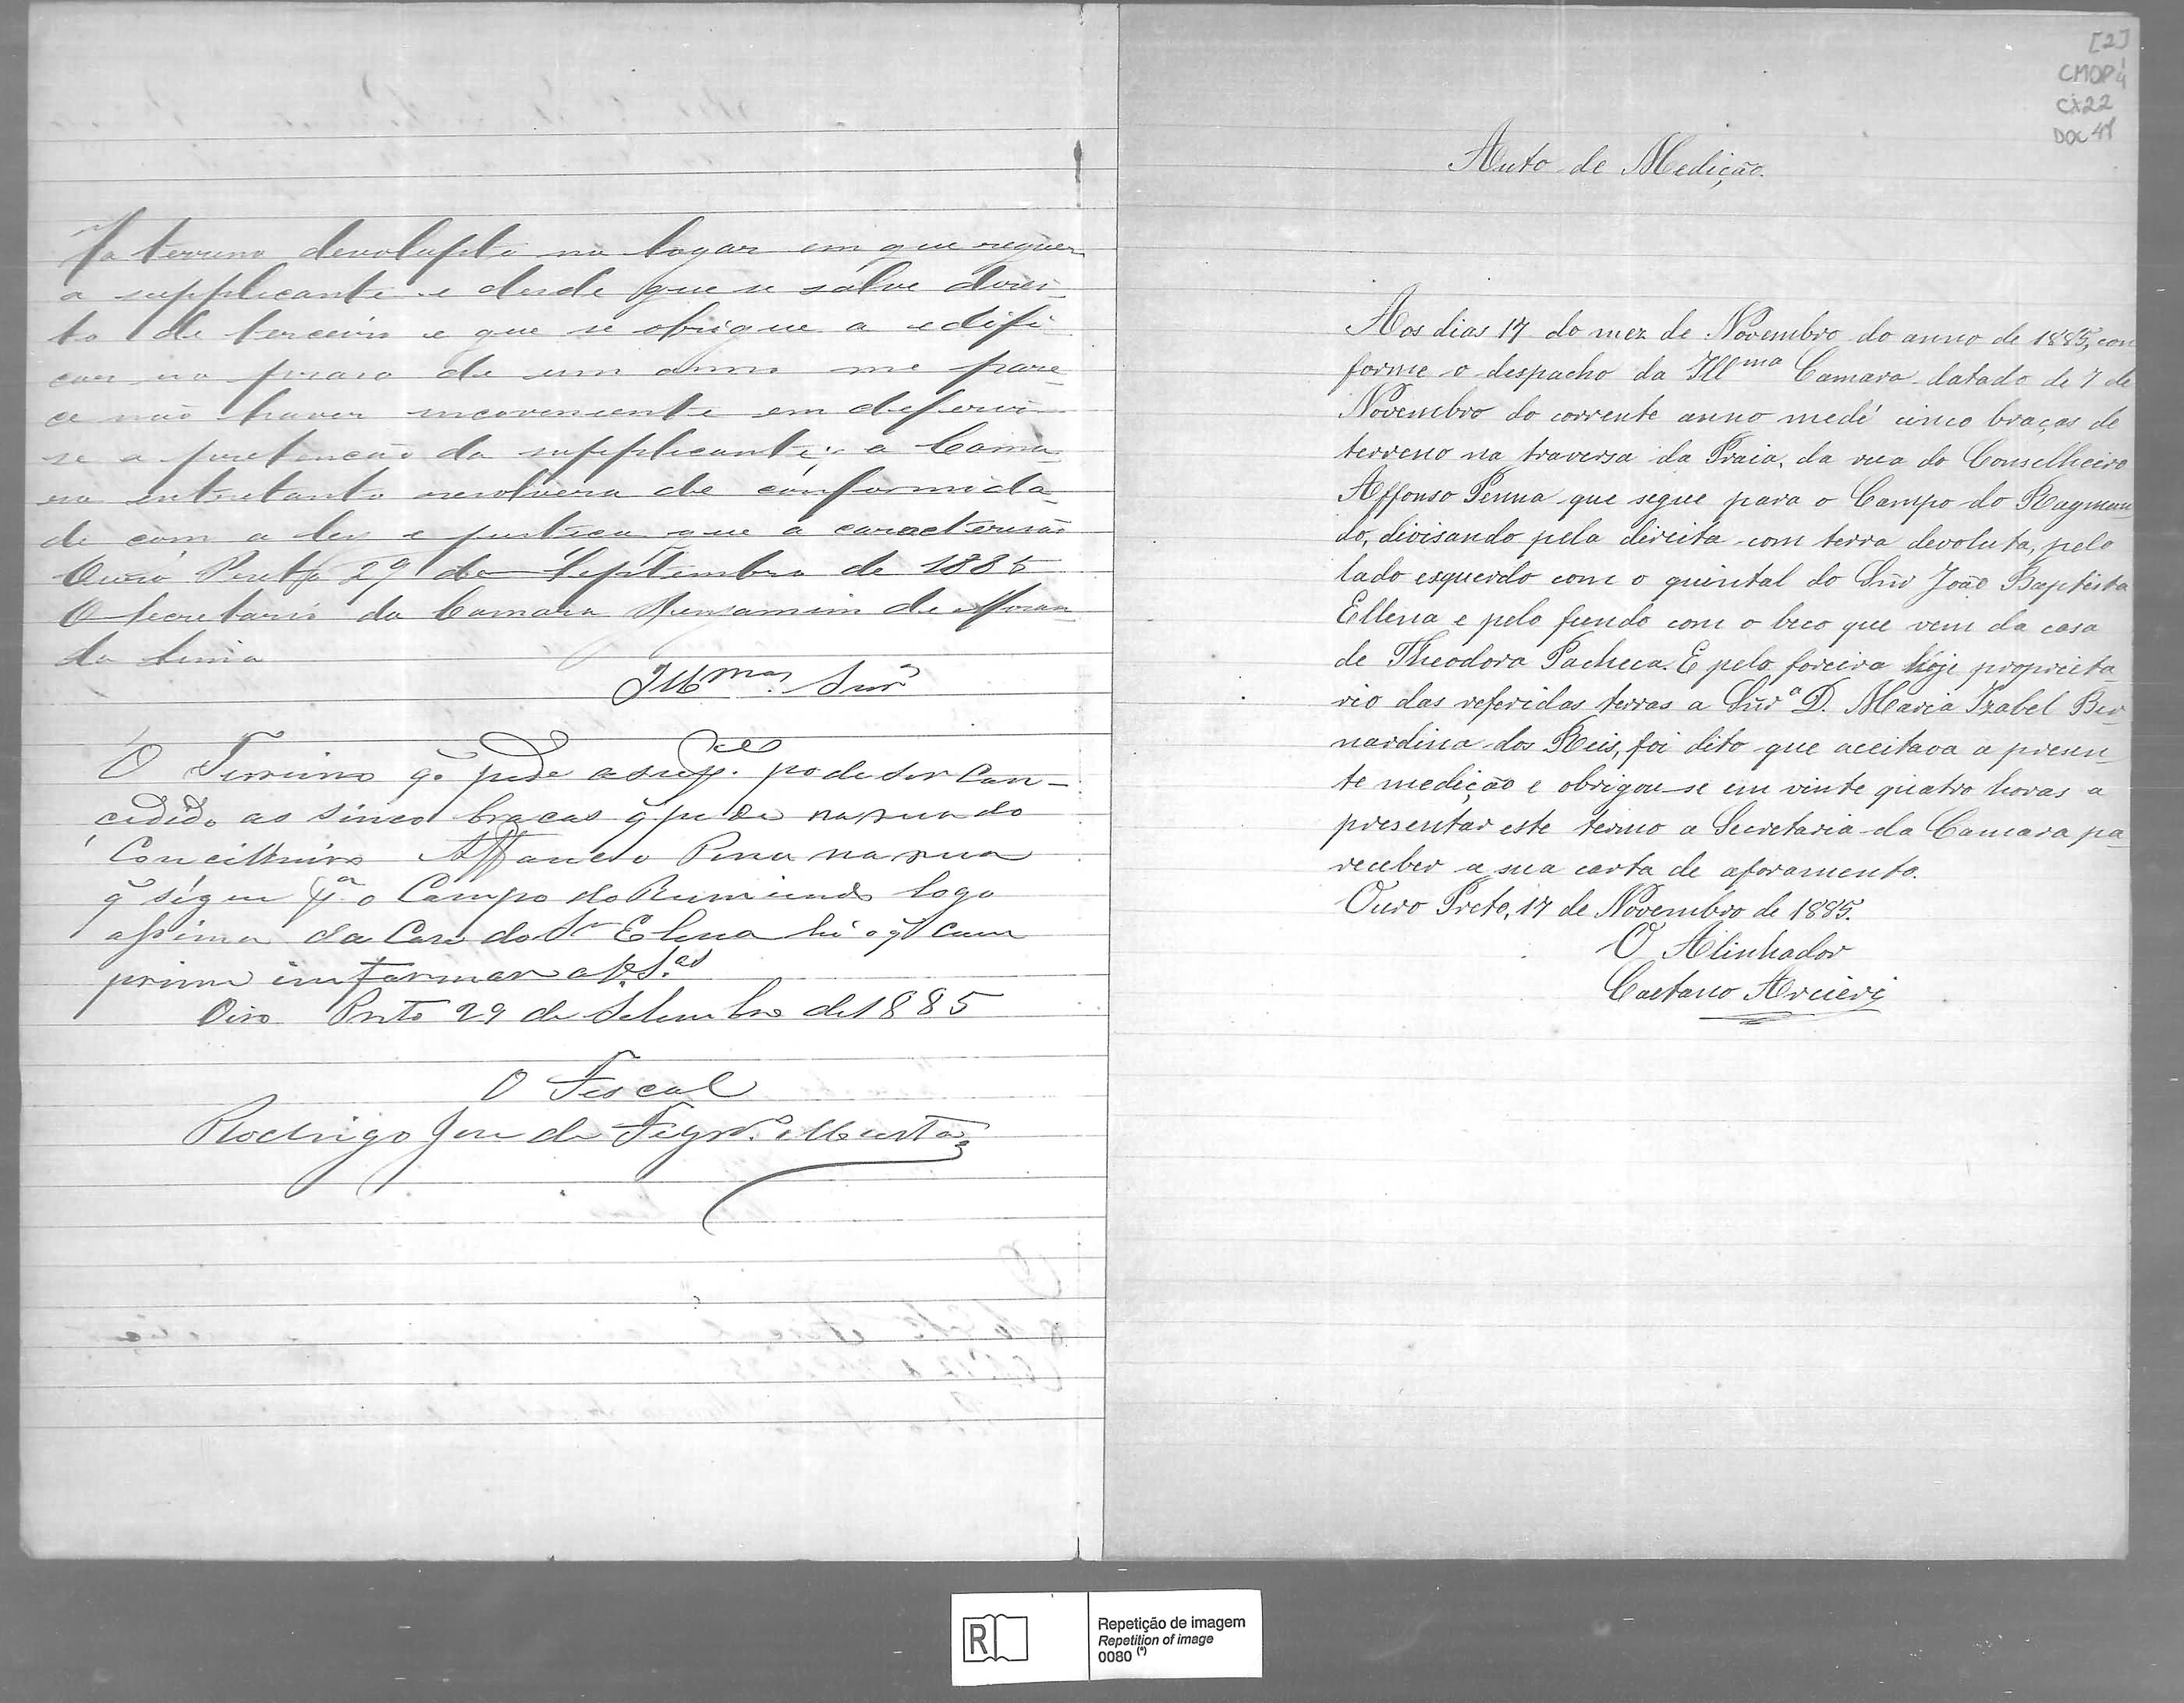 Ha terreno devolupto no logar em que requer
a supplicante e desde que se salve direi-
to de terceiro e que se obrigue a edifi-
car no praso de um anno me pare-
ce não haver incoveniente em deferir-
se a pretenção da supplicante; a Cama-
ra entretanto resolvera de conformida-
de com a ley e justiça que a caracterisão
Ouro Preto 29 de Septembro de 1885
O Secretario da Camara Benjamim de Miran-
da Lima
Illmos Snrs
O Terreino q̃ pede a supp.e pode ser Con-
cedido as sinco bracas q̃ pede na rua do
Concilheiro Affanco Pena na rua
q̃ sigue p.a o Campo do Rumiundo logo
assima da Casa do Sr Elena hé o q̃ Cum
prime imformar a V.S.as
Oiro Preto 29 de Setembro de 1885
O Fiscal
Rodrigo Jose de Figrdo Murta
[2]
CMOP
CX22
DOC 41
Auto de Medição.
Aos dias 17 do mez de Novembro do anno de 1885, con
forme o despacho da Illma Camara datado de 7 de
Novembro do corrente anno medé cinco braças de
terreno na traversa da Praia, da rua do Conselheiro
Affonso Penna que segue para o Campo do Raymun
do, divisando pela direita com terra devoluta, pelo
lado esquerdo com o quintal do Snr João Baptista
Ellena e pelo fundo com o beco que vem da casa
de Theodora Pacheca. E pelo foreira hoje proprieta-
rio das referidas terras a Snra D. Maria Izabel Ber
nardina dos Reis, foi dito que aceitava a presen-
te medição e obrigou-se em vinte quatro horas a
presentar este termo a Secretaria da Camara pa-
receber a sua carta de aforamento.
Ouro Preto, 17 de Novembro de 1885.
O Alinhador
Caetano Arcieri
R
Repetição de imagem
Repetition of image
0080 (*)